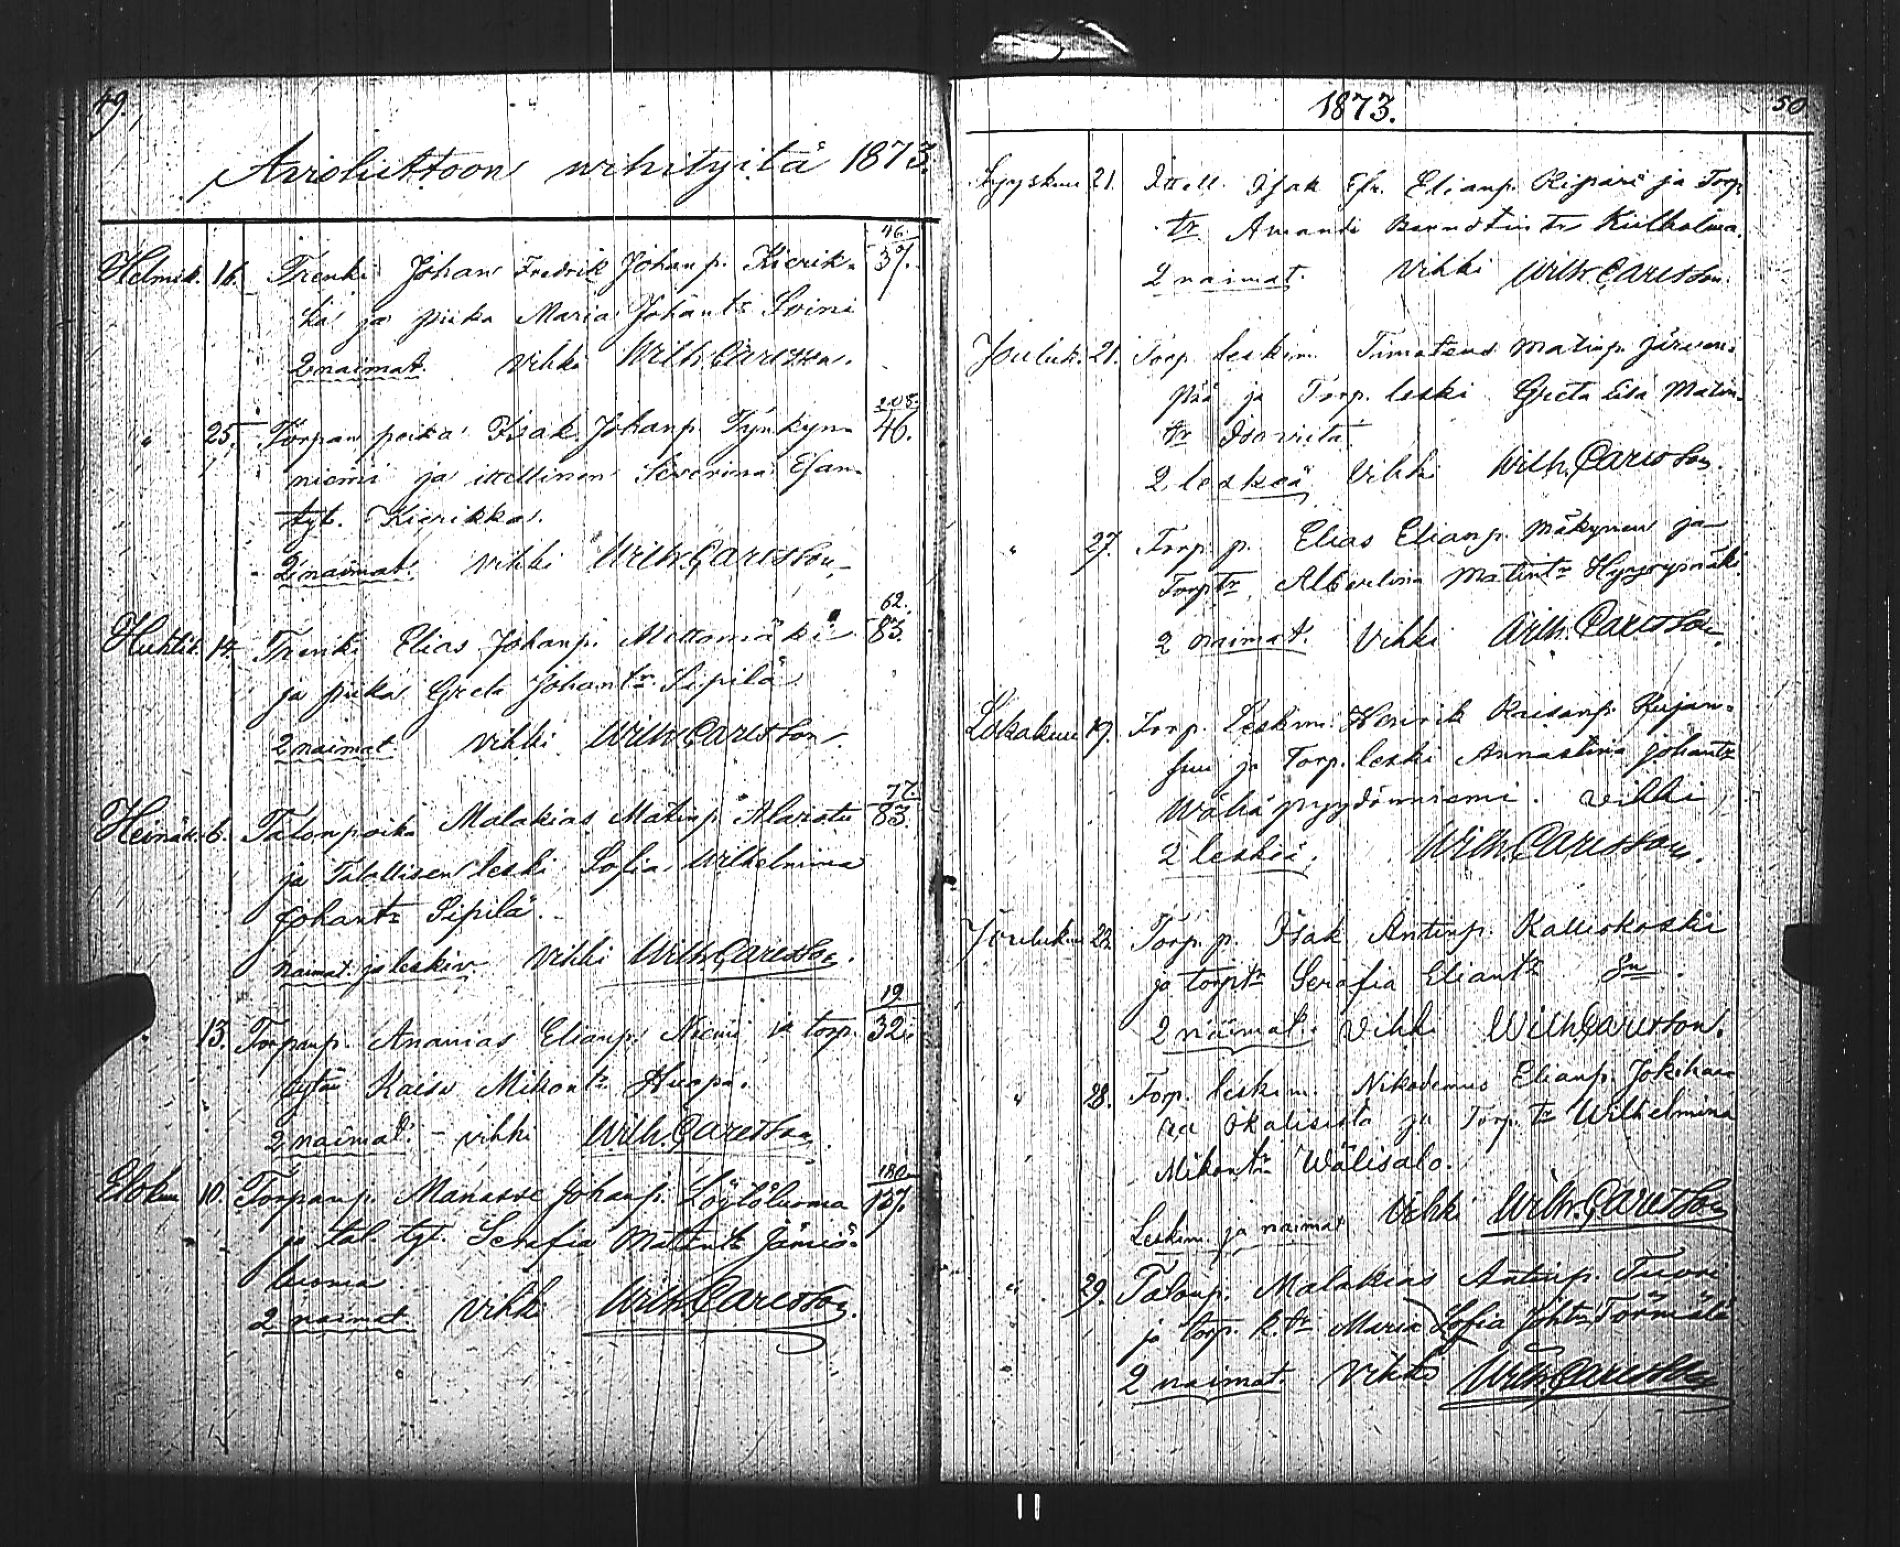 49.
Avioliittoon wihityitä 1873.
Helmik. 16. Trenki Johan Fredrik Johanp. Kierik- 46. 37.
ka ja piika Maria Johantr Soini
2 naimat. Vihki Wilh. Carlsson.
" 25. Torpan poika Isak Johanp. Tynkyn- 208. 40.
niemi ja ittellinen Severina Esan-
tyt. Kierikka.
2 naimat. Vihki Wilh. Carlsson.
Huhtik. 14. Trenki Elias Johanp. Mottomäki 62. 83.
ja piika Greta Johantr Sipilä
2 naimat. Vihki Wilh. Carlsson.
Heinäk. 6. Talonpoika Malakias Matinp. Alaristu 77. 83.
ja Talollisen leski Sofia Wilhelmina
Johantr Sipilä.
naimat. ja leskiv. Vihki Wilh. Carlsson.
" 13. Torpanp. Ananias Elianp. Niemi ja torp. 19. 32.
tytär Kaisa Mikontr Huopa.
2 naimat. - vihki Wilh. Carlsson.
Elokuu 10. Torpanp. Manasse Johanp. Löytöluoma 180. 137.
ja tal. tyt. Serafia Matintr Jämiä-
luoma
2 naimat. Vihki Wilh. Carlsson.
1873. 50
Syyskuu 21. Ittell. Isak Elianp. Ripari ja Torp.
tr. Amanda Kulhalma.
2 naimat. Vihki Wilh. Carlsson.
Jouluk. 21. Torp. leskim. Timoteus Matinp. Järven-
pää ja Torp. leski Greta Lisa Matin-
tr Isoviita.
2 leskeä Vihki Wilh. Carlsson.
" 27. Torp. p. Elias Elianp. Mäkynen ja
Torp tr. Albertina Matintr Hyyrynmäki.
2 naimat. Vihki Wilh. Carlsson.
Lokakuu 19. Torp. Leskim. Henrik Kaisanp. Kujan-
suu ja Torp. leski Annastina Johantr
Wähäpyydönniemi. Vihki
2 leskiä. Wilh. Carlsson.
Joulukuu 22. Torp. p. Isak Antinp. Kalliokoski
ja torptr Serafia Eliantr
2 naimat. Vihki Wilh. Carlsson.
" 28. Torp. leskim. Nikodemus Elianp. Jokihaa
ra Ikalisista ja Torp. tr Wilhelmina
Mikontr Wälisalo.
Leskim. ja naimat. Vihki Wilh. Carlsson
" 29. Talonp. Malakias Antinp. Tuori
ja torp. k. tr Maria Sofia Johtr Törmälä
2 naimat. Vihki Wilh. Carlsson
11